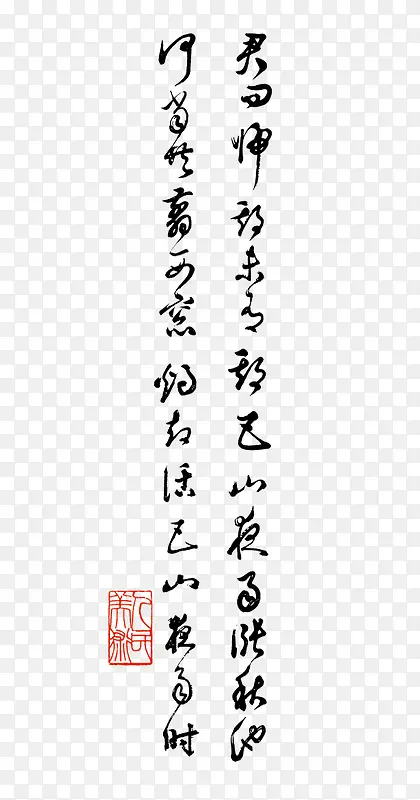 君问归期未有期巴山夜雨涨秋池
何当共翦西窗烛却话巴山夜雨时